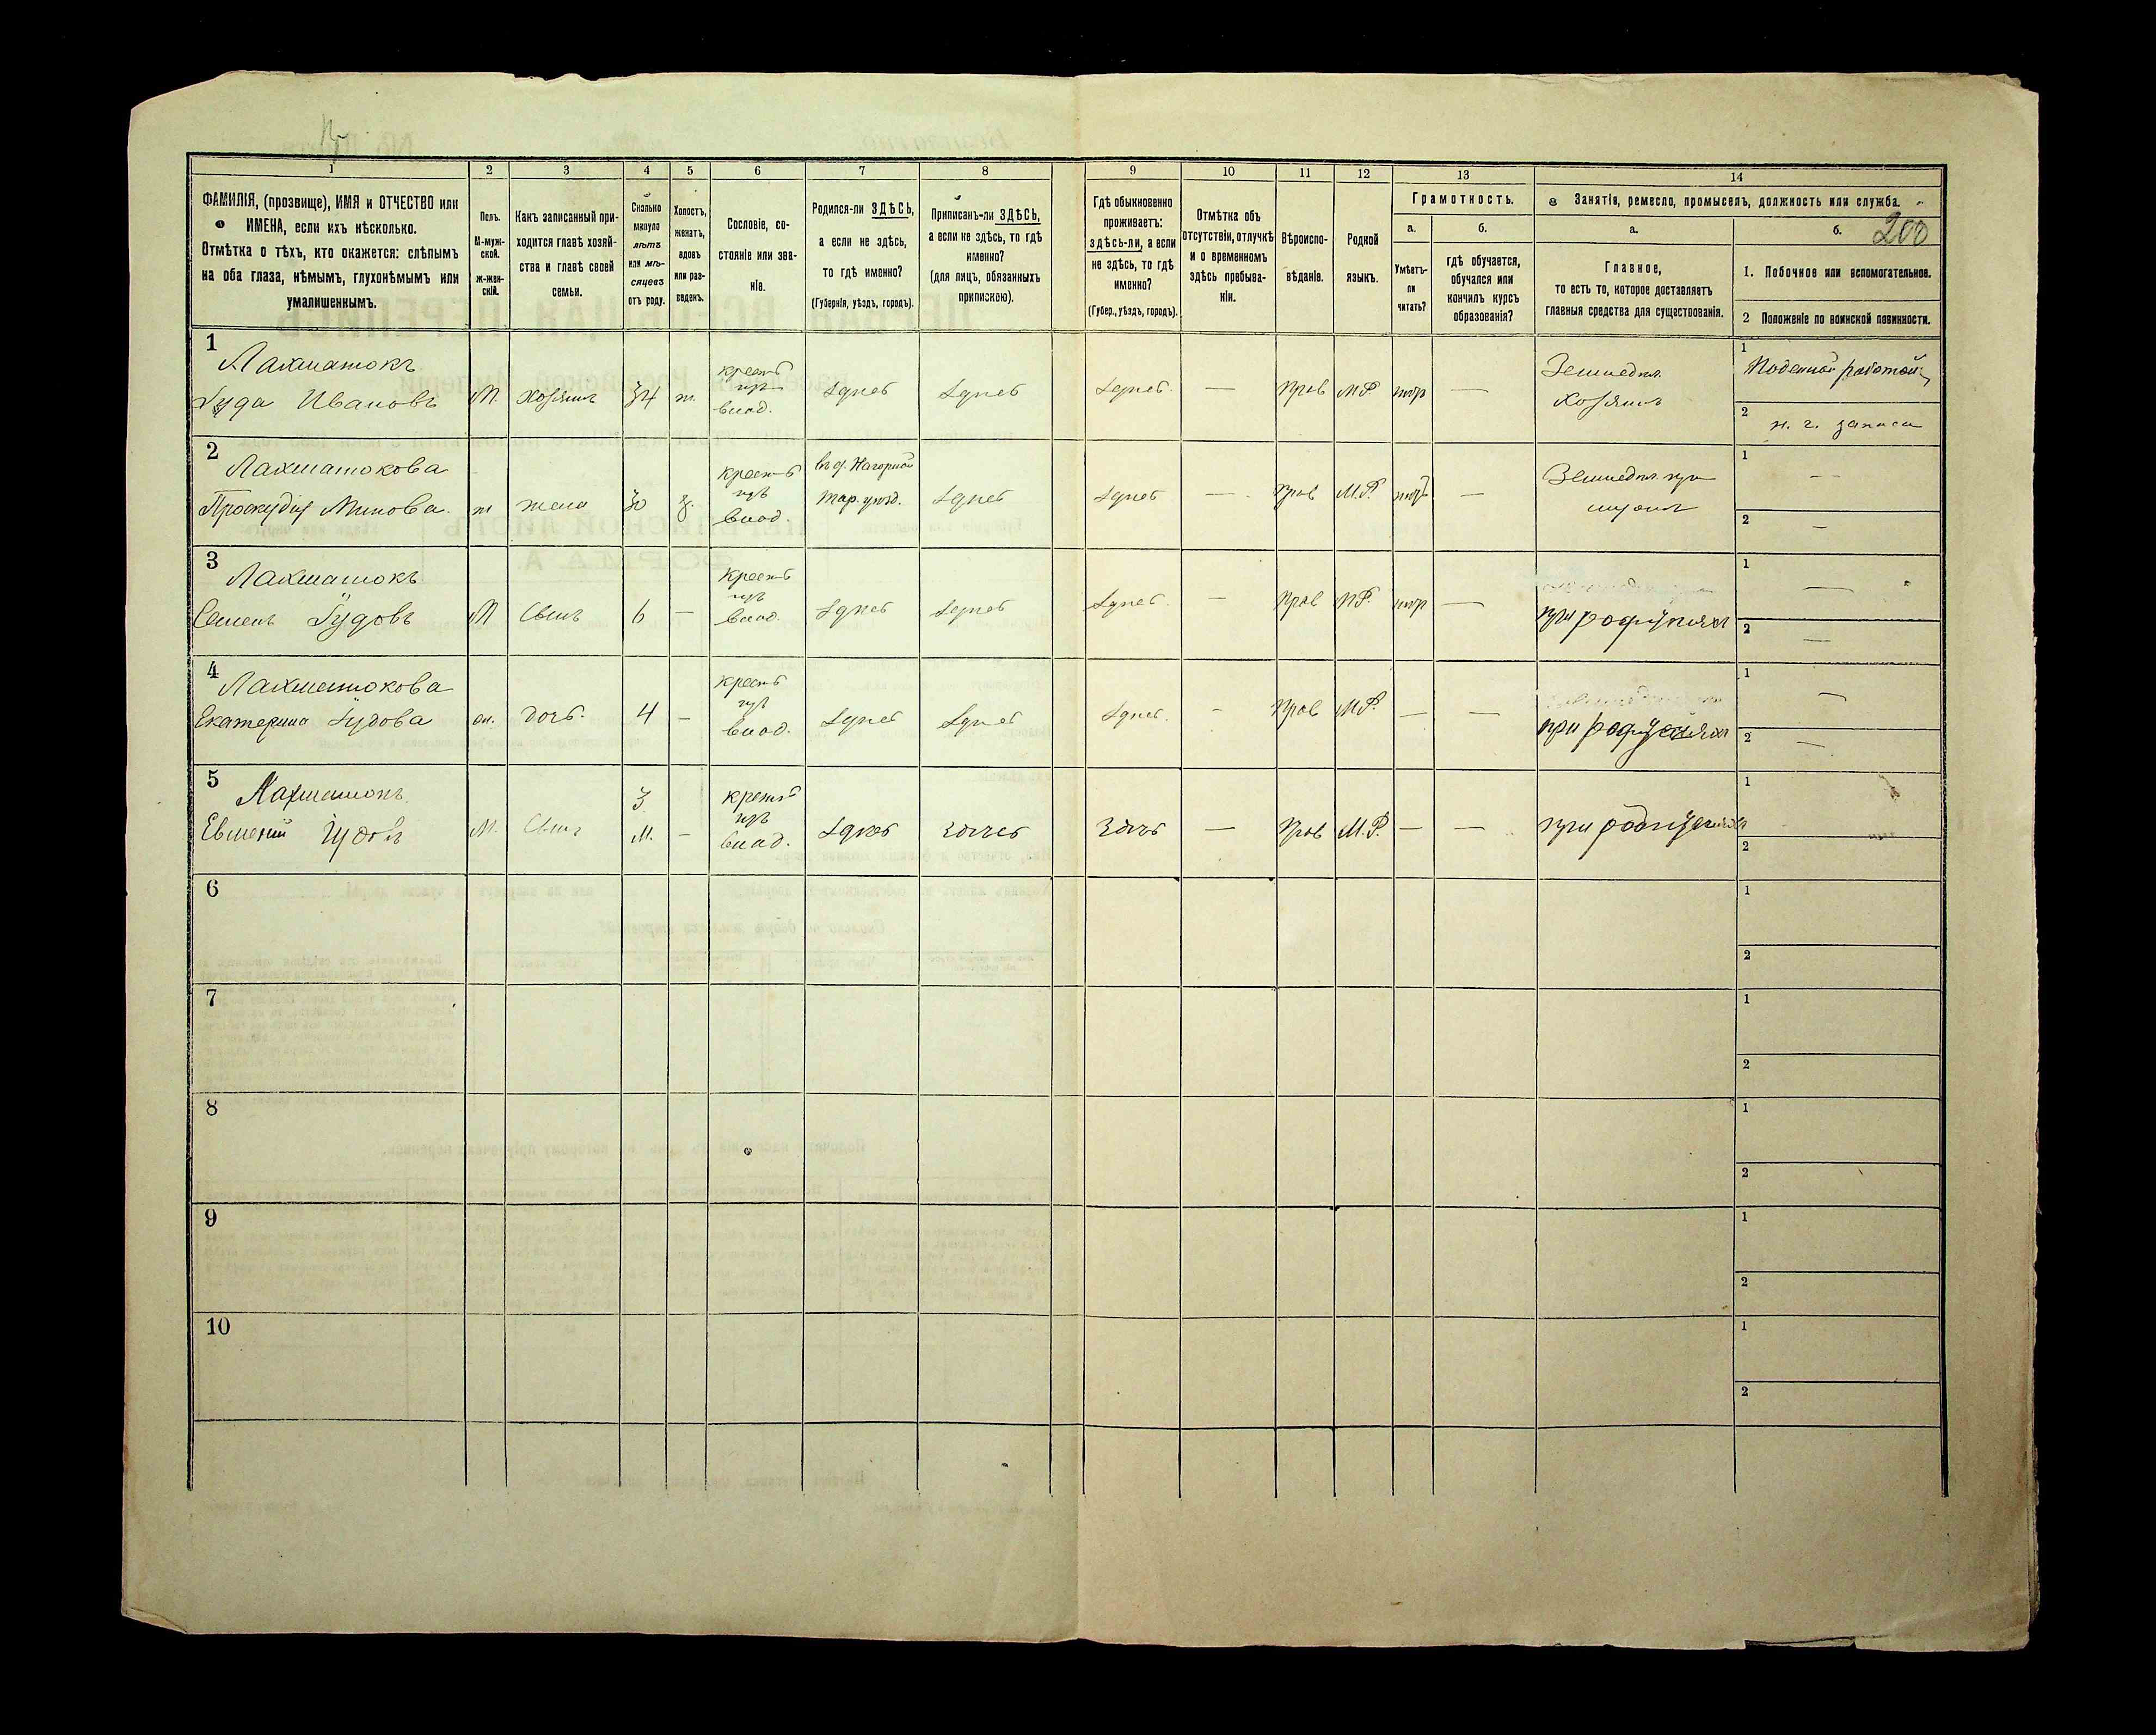 200
1
2
3
4
5
6
7
8
9
10
11
12
13
14
ФАМИЛІЯ, (прозвище), ИМЯ и ОТЧЕСТВО или
ИМЕНА, если ихъ нѣсколько.
Отмѣтка о тѣхъ, кто окажется: слѣпымъ
на оба глаза, нѣмымъ, глухонѣмымъ или
умалишеннымъ.
Полъ.
М-муж-
ской.
Ж-жен-
скій.
Какъ записанный при-
ходится главѣ хозяй-
ства и главѣ своей
семьи.
Сколько
минуло
лѣтъ
или мѣ-
сяцевъ
отъ роду.
Холостъ,
женатъ,
вдовъ
или раз-
веденъ.
Сословіе, со-
стояніе или зва-
ніе.
Родился-ли ЗДѢСЬ,
а если не здѣсь,
то гдѣ именно?
(Губернія, уѣздъ, городъ).
Приписанъ-ли ЗДѢСЬ,
а если не здѣсь, то гдѣ
именно?
(для лицъ, обязанныхъ
припискою).
Гдѣ обыкновенно
проживаетъ:
здѣсь-ли, а если
не здѣсь, то гдѣ
именно?
(Губер., уѣздъ, городъ).
Отмѣтка объ
отсутствіи, отлучкѣ
и о временномъ
здѣсь пребыва-
ніи.
Вѣроиспо-
вѣданіе.
Родной
языкъ.
Грамотность.
а.
Умѣетъ-
ли
читать?
б.
гдѣ обучается,
обучался или
кончилъ курсъ
образованія?
Занятія, ремесло, промыселъ, должность или служба.
а.
Главное,
то есть то, которое доставляетъ
главныя средства для существованія.
б.
1. Побочное или вспомогательное.
2 Положеніе по воинской повинности.
1
Лахматокъ
Іуда Ивановъ
М.
Хозяинъ
34
ж.
крест
изъ
влад.
Здѣсь
Здѣсь
Здѣсь.
—
Прав
М.Р.
—
Земледѣл.
Хозяинъ
1
Поденной работой
2
н. г. запаса
2
Лахматокова
Минова.
ж
жена
30
З.
Крест
изъ
влад.
въ д. Нагорной
уѣзд.
Здѣсь
Здѣсь
—
Прав
М.Р.
—
Земледѣл. при
мужѣ
1
—
2
—
3
Лахматокъ
Семенъ Іудовъ
М
Сынъ
6
—
Крест
изъ
влад.
Здѣсь
Здѣсь
Здѣсь.
—
Прав
М.Р.
—
при родителяхъ
1
—
2
—
4
Лахматокова
Екатерина Іудова
ж.
дочь.
4
—
Крест
изъ
влад.
Здѣсь
Здѣсь
Здѣсь.
—
Прав
М.Р.
—
—
при родителяхъ
1
—
2
—
5
Лахматокъ
Евмений Іудовъ
М.
Сынъ
3
М.
—
крест
изъ
влад.
Здѣсь
Здѣсь
Здѣсь
—
Прав
М.Р.
—
—
при родителяхъ
1
2
6
1
2
7
1
2
8
1
2
9
1
2
10
1
2